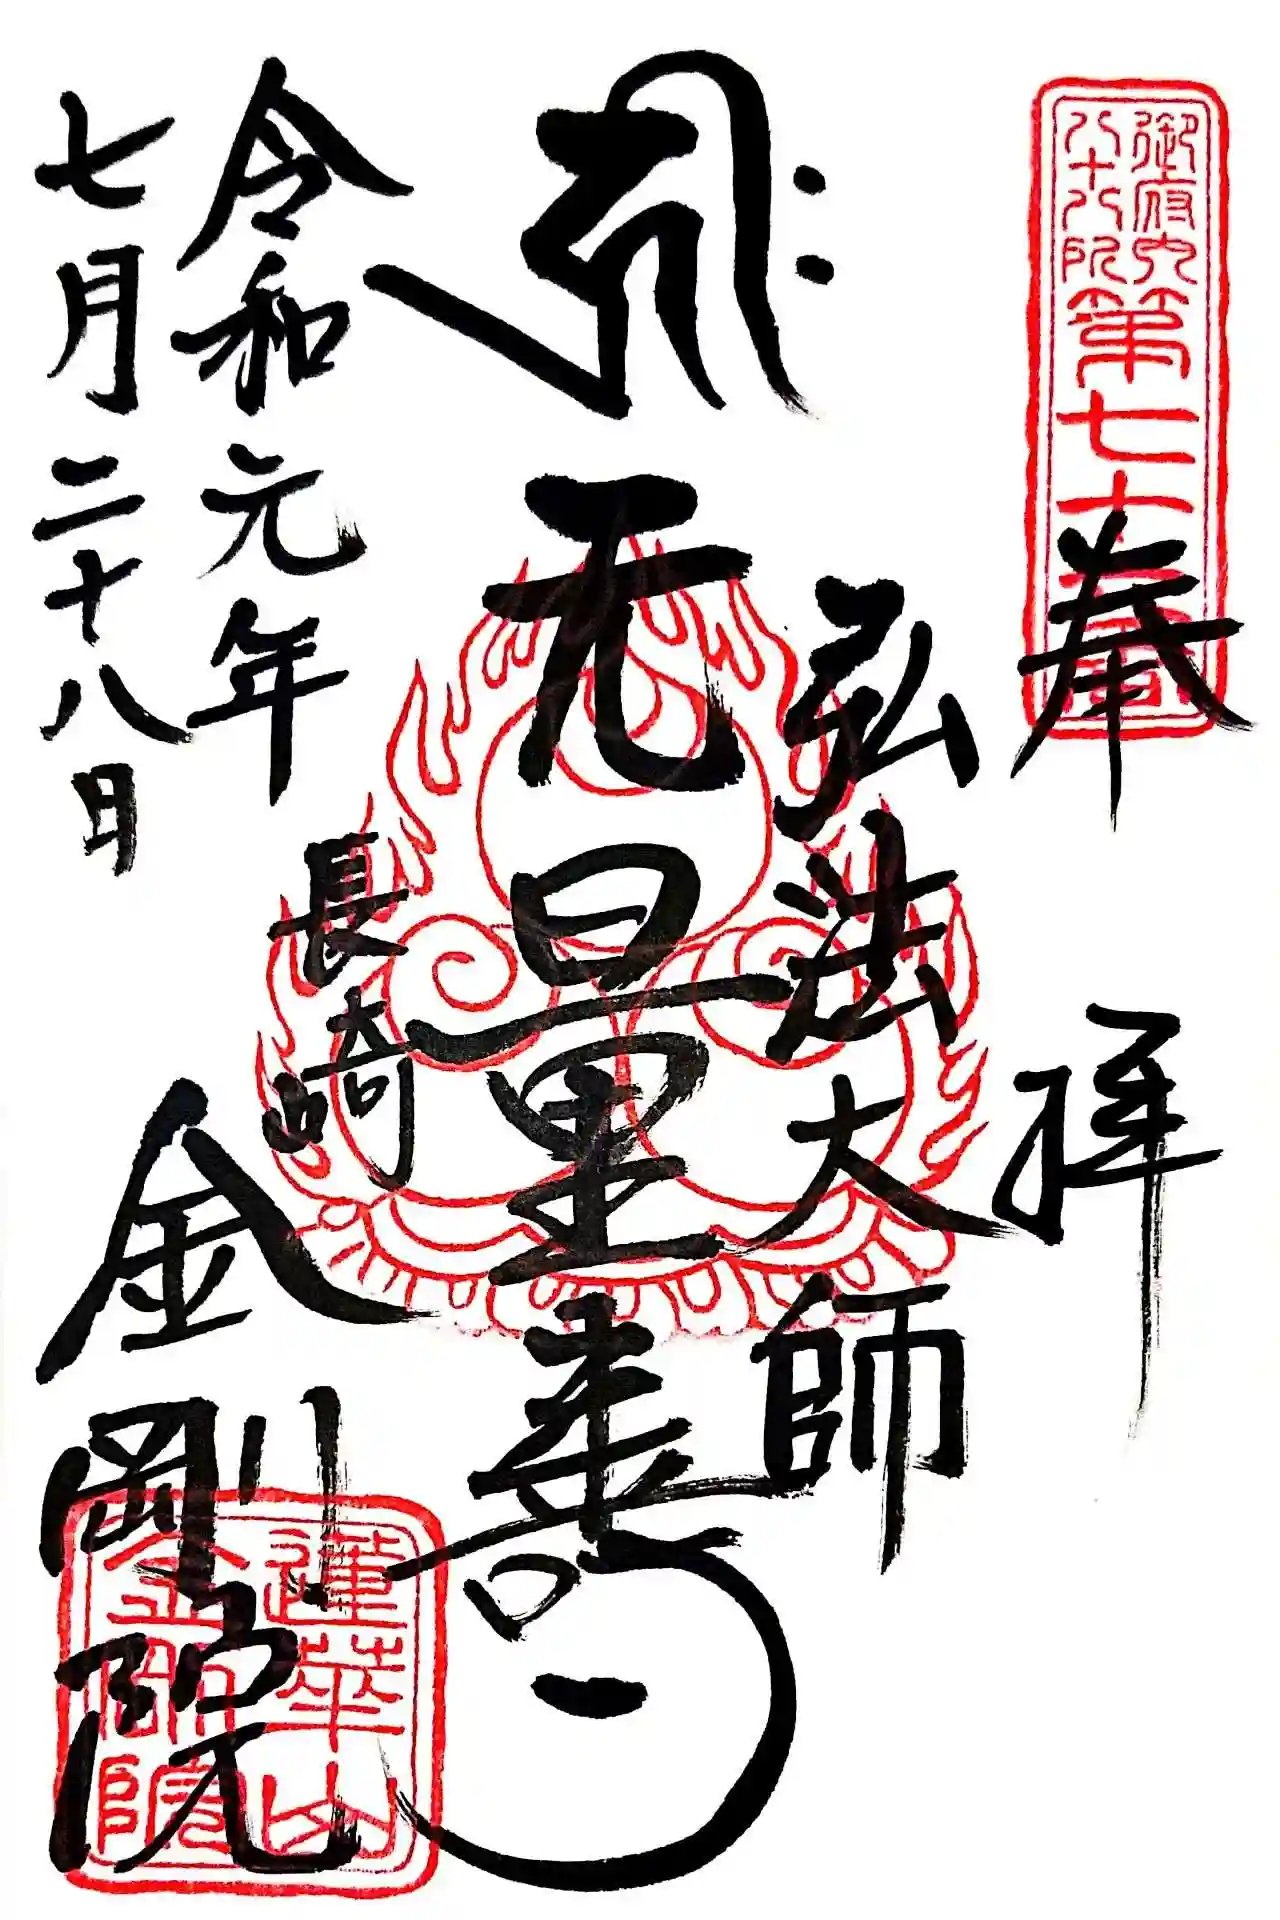 御府内
八十八ヶ所
第七十六番
奉拝
弘法大師
𑖮𑖿𑖨𑖱𑖾 无量寿
長崎
金剛院
令和元年
七月二十八日
蓮華山
金剛院